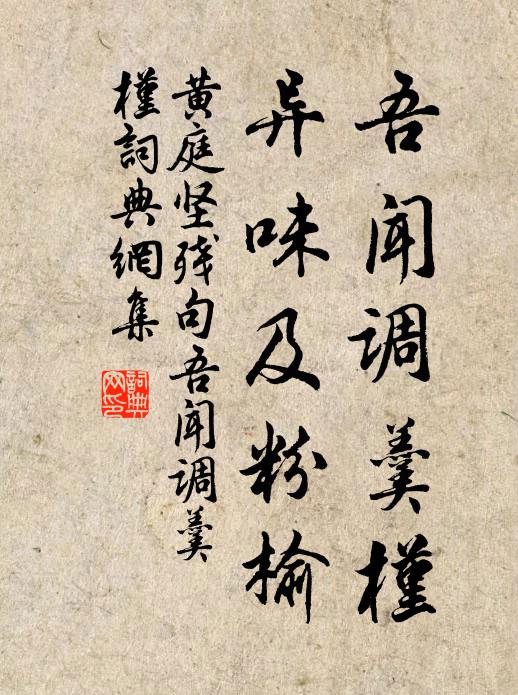 吾闻调羹槿
异味及粉榆
黄庭坚残句吾闻调羹
槿詞典網集
詞典网印